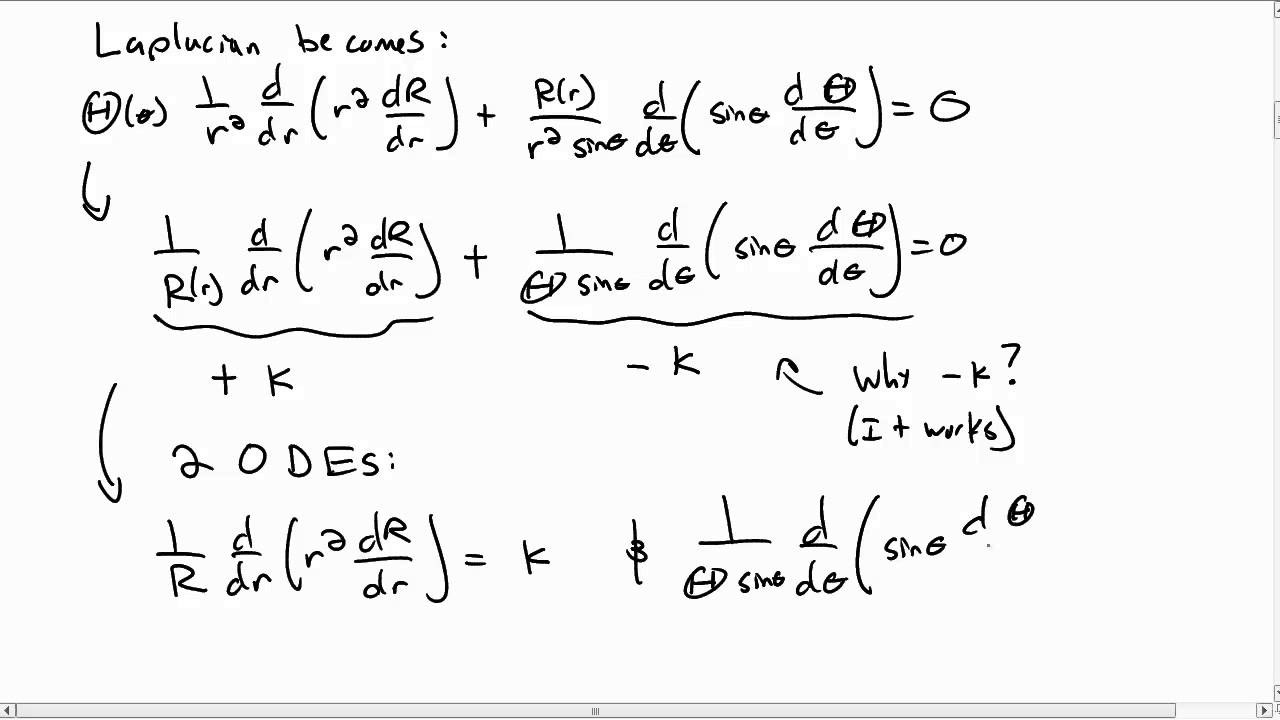 Laplucian becomes:
Θ(θ) 1/r² d/dr (r² dR/dr) + R(r)/(r² sinθ) d/dθ (sinθ dΘ/dθ) = 0
1/R(r) d/dr (r² dR/dr) + 1/(Θ sinθ) d/dθ (sinθ dΘ/dθ) = 0
+ K - K Why -K?
(It works)
2 ODEs:
1/R d/dr (r² dR/dr) = K & 1/(Θ sinθ) d/dθ (sinθ dΘ